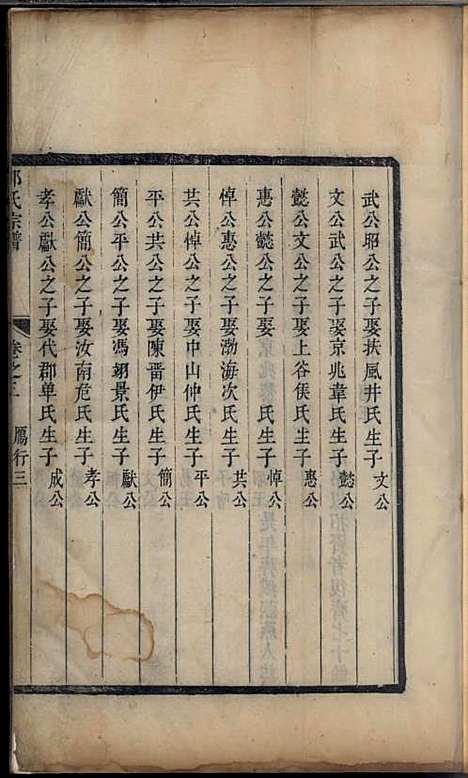 武公昭公之子娶扶風井氏生子文公
文公武公之子娶京兆韋氏生子懿公
懿公文公之子娶上谷侯氏生子惠公
惠公懿公之子娶 氏生子悼公
悼公惠公之子娶渤海次氏生子共公
共公悼公之子娶中山仲氏生子平公
平公共公之子娶陳晋伊氏生子簡公
簡公平公之子娶馮翊景氏生子獻公
獻公簡公之子娶汝南危氏生子孝公
孝公獻公之子娶代郡单氏生子成公
氏宗譜 卷之三 鴈行三